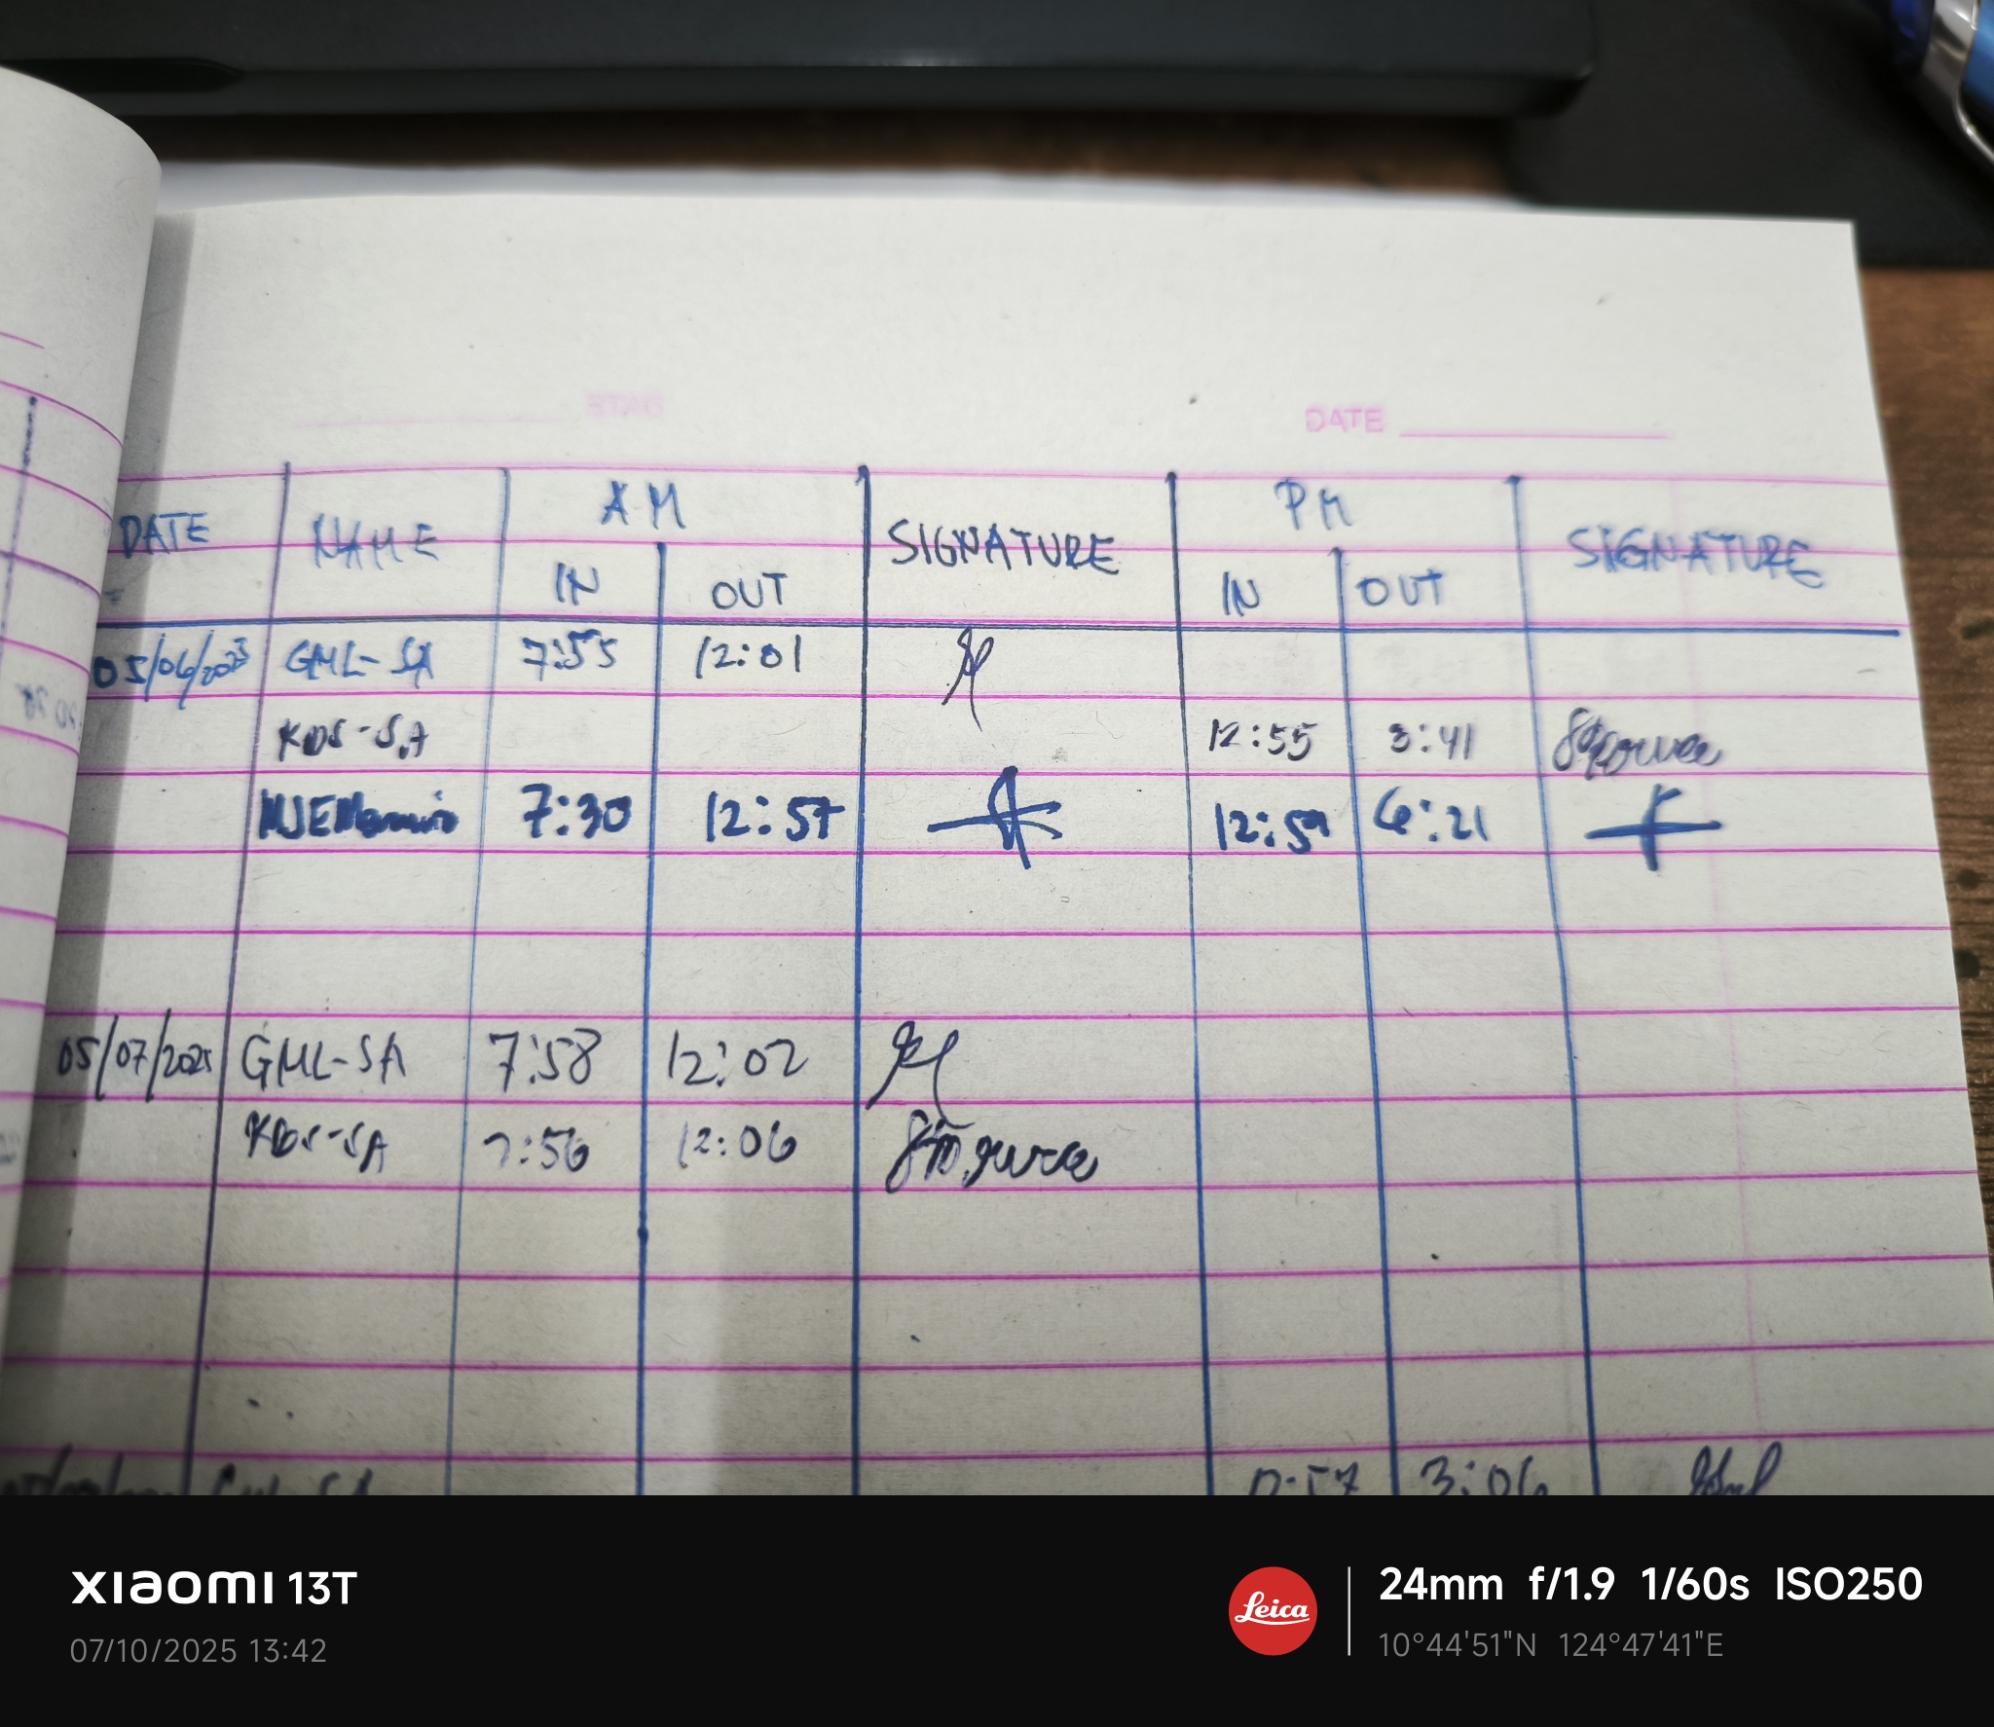 DATE
DATE NAME AM SIGNATURE PM SIGNATURE
IN OUT IN OUT
05/06/2025 GML-SA 7:55 12:01
KDS-SA 12:55 3:41
7:30 12:57 12:59 6:21
05/07/2025 GML-SA 7:58 12:02
KDS-SA 7:56 12:06
3:06
XIAOMI 13T
07/10/2025 13:42
Leica
24mm f/1.9 1/60s ISO250
10°44'51"N 124°47'41"E